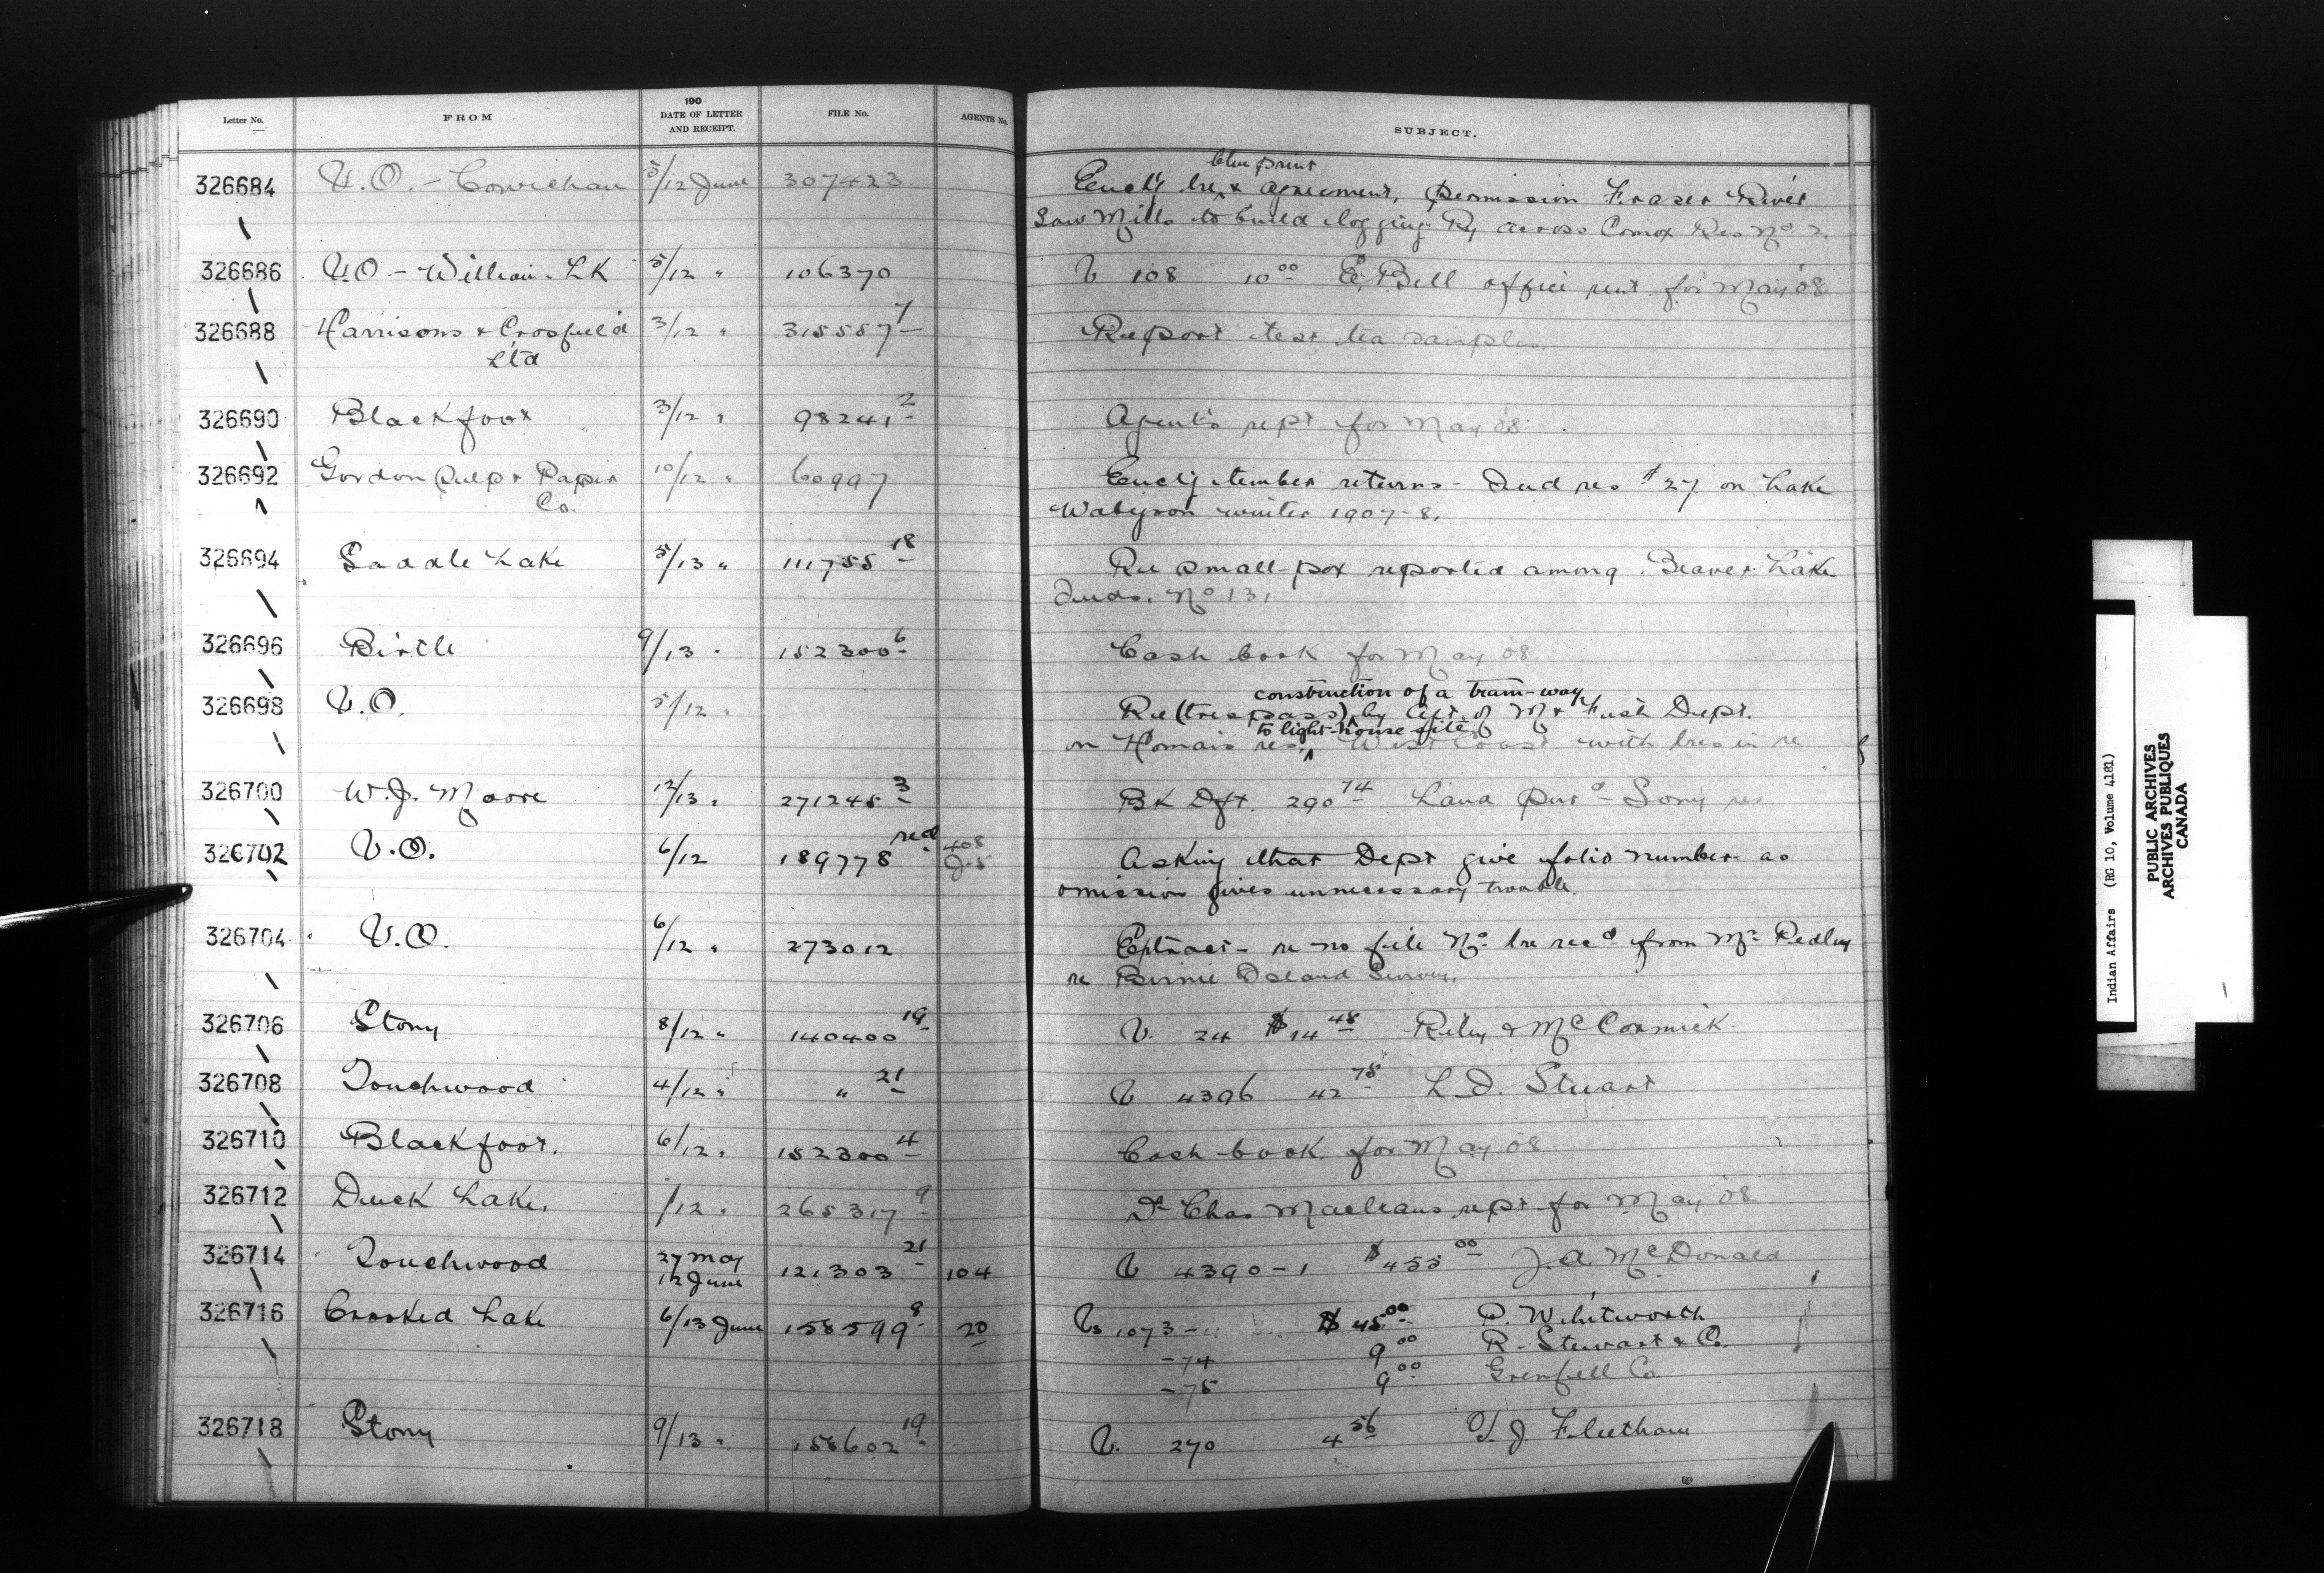 Letter No. FROM 190 DATE OF LETTER AND RECEIPT. FILE No. AGENTS No. SUBJECT.
326684 V.O. - Cowichan 5/12 June 307423 Encl'g lre & blue print agreement, permission Fraser River
Saw Mills to build logging Ry across Comox Res No 2.
326686 V.O - William. LK 5/12 " 106370 V 108 10 00 E. Bell office rent for May '08
326688 Harrisons & Crosfield 3/12 " 315557 1 Report test tea samples
Ltd
326690 Blackfoot 3/12 " 98241 2 Agent's rept for May '08
326692 Gordon Pulp & Paper 10/12 " 60997 Encl'g timber returns - Ind res # 27 on Lake
Co. Wabigoon winter 1907-8.
326694 Saddle Lake 5/13 " 111755 18 Re small-pox reported among Beaver Lake
Inds. No 131
326696 Birtle 9/13 " 152300 6 Cash book for May 08
326698 V.O. 5/12 " Re (trespass) construction of a tram-way by Agt. of Mr & Fish Dept.
on Homais res, to light-house site West Coast with lres in re
326700 W.J. Moore 12/13 " 271245 3 Bk Dft. 290 74 Land pur d - Sony res
326702 V.O. 6/12 189778 red 408 J-5 Asking that Dept give folio number as
omission gives unnecessary trouble.
326704 V.O. 6/12 " 273012 Extract - re no file No lre rec'd from Mr Pedley
re Birnie Island Survey.
326706 Stony 8/12 " 140400 19 V. 24 $14 48 Riley & McCormick
326708 Touchwood 4/12 " " 21 V 4396 42 75 L.D. Stuart
326710 Blackfoot. 6/12 " 152300 4 Cash book for May 08
326712 Duck Lake. /12 " 265317 9 Dr Chas Macleans rept for May '08
326714 Touchwood 27 May 12 June 121303 21 104 V 4390-1 $455 00 J.A. McDonald
326716 Crooked Lake 6/13 June 158599 8 20 Vs 1073 - $45 00 P. Whitworth
-74 9 00 R. Stewart & Co.
-75 9 00 Grenfell Co
326718 Stony 9/13 " 158602 19 V. 270 4 56 T.J. Fleetham
Indian Affairs (RG 10, Volume 4181)
PUBLIC ARCHIVES
ARCHIVES PUBLIQUES
CANADA